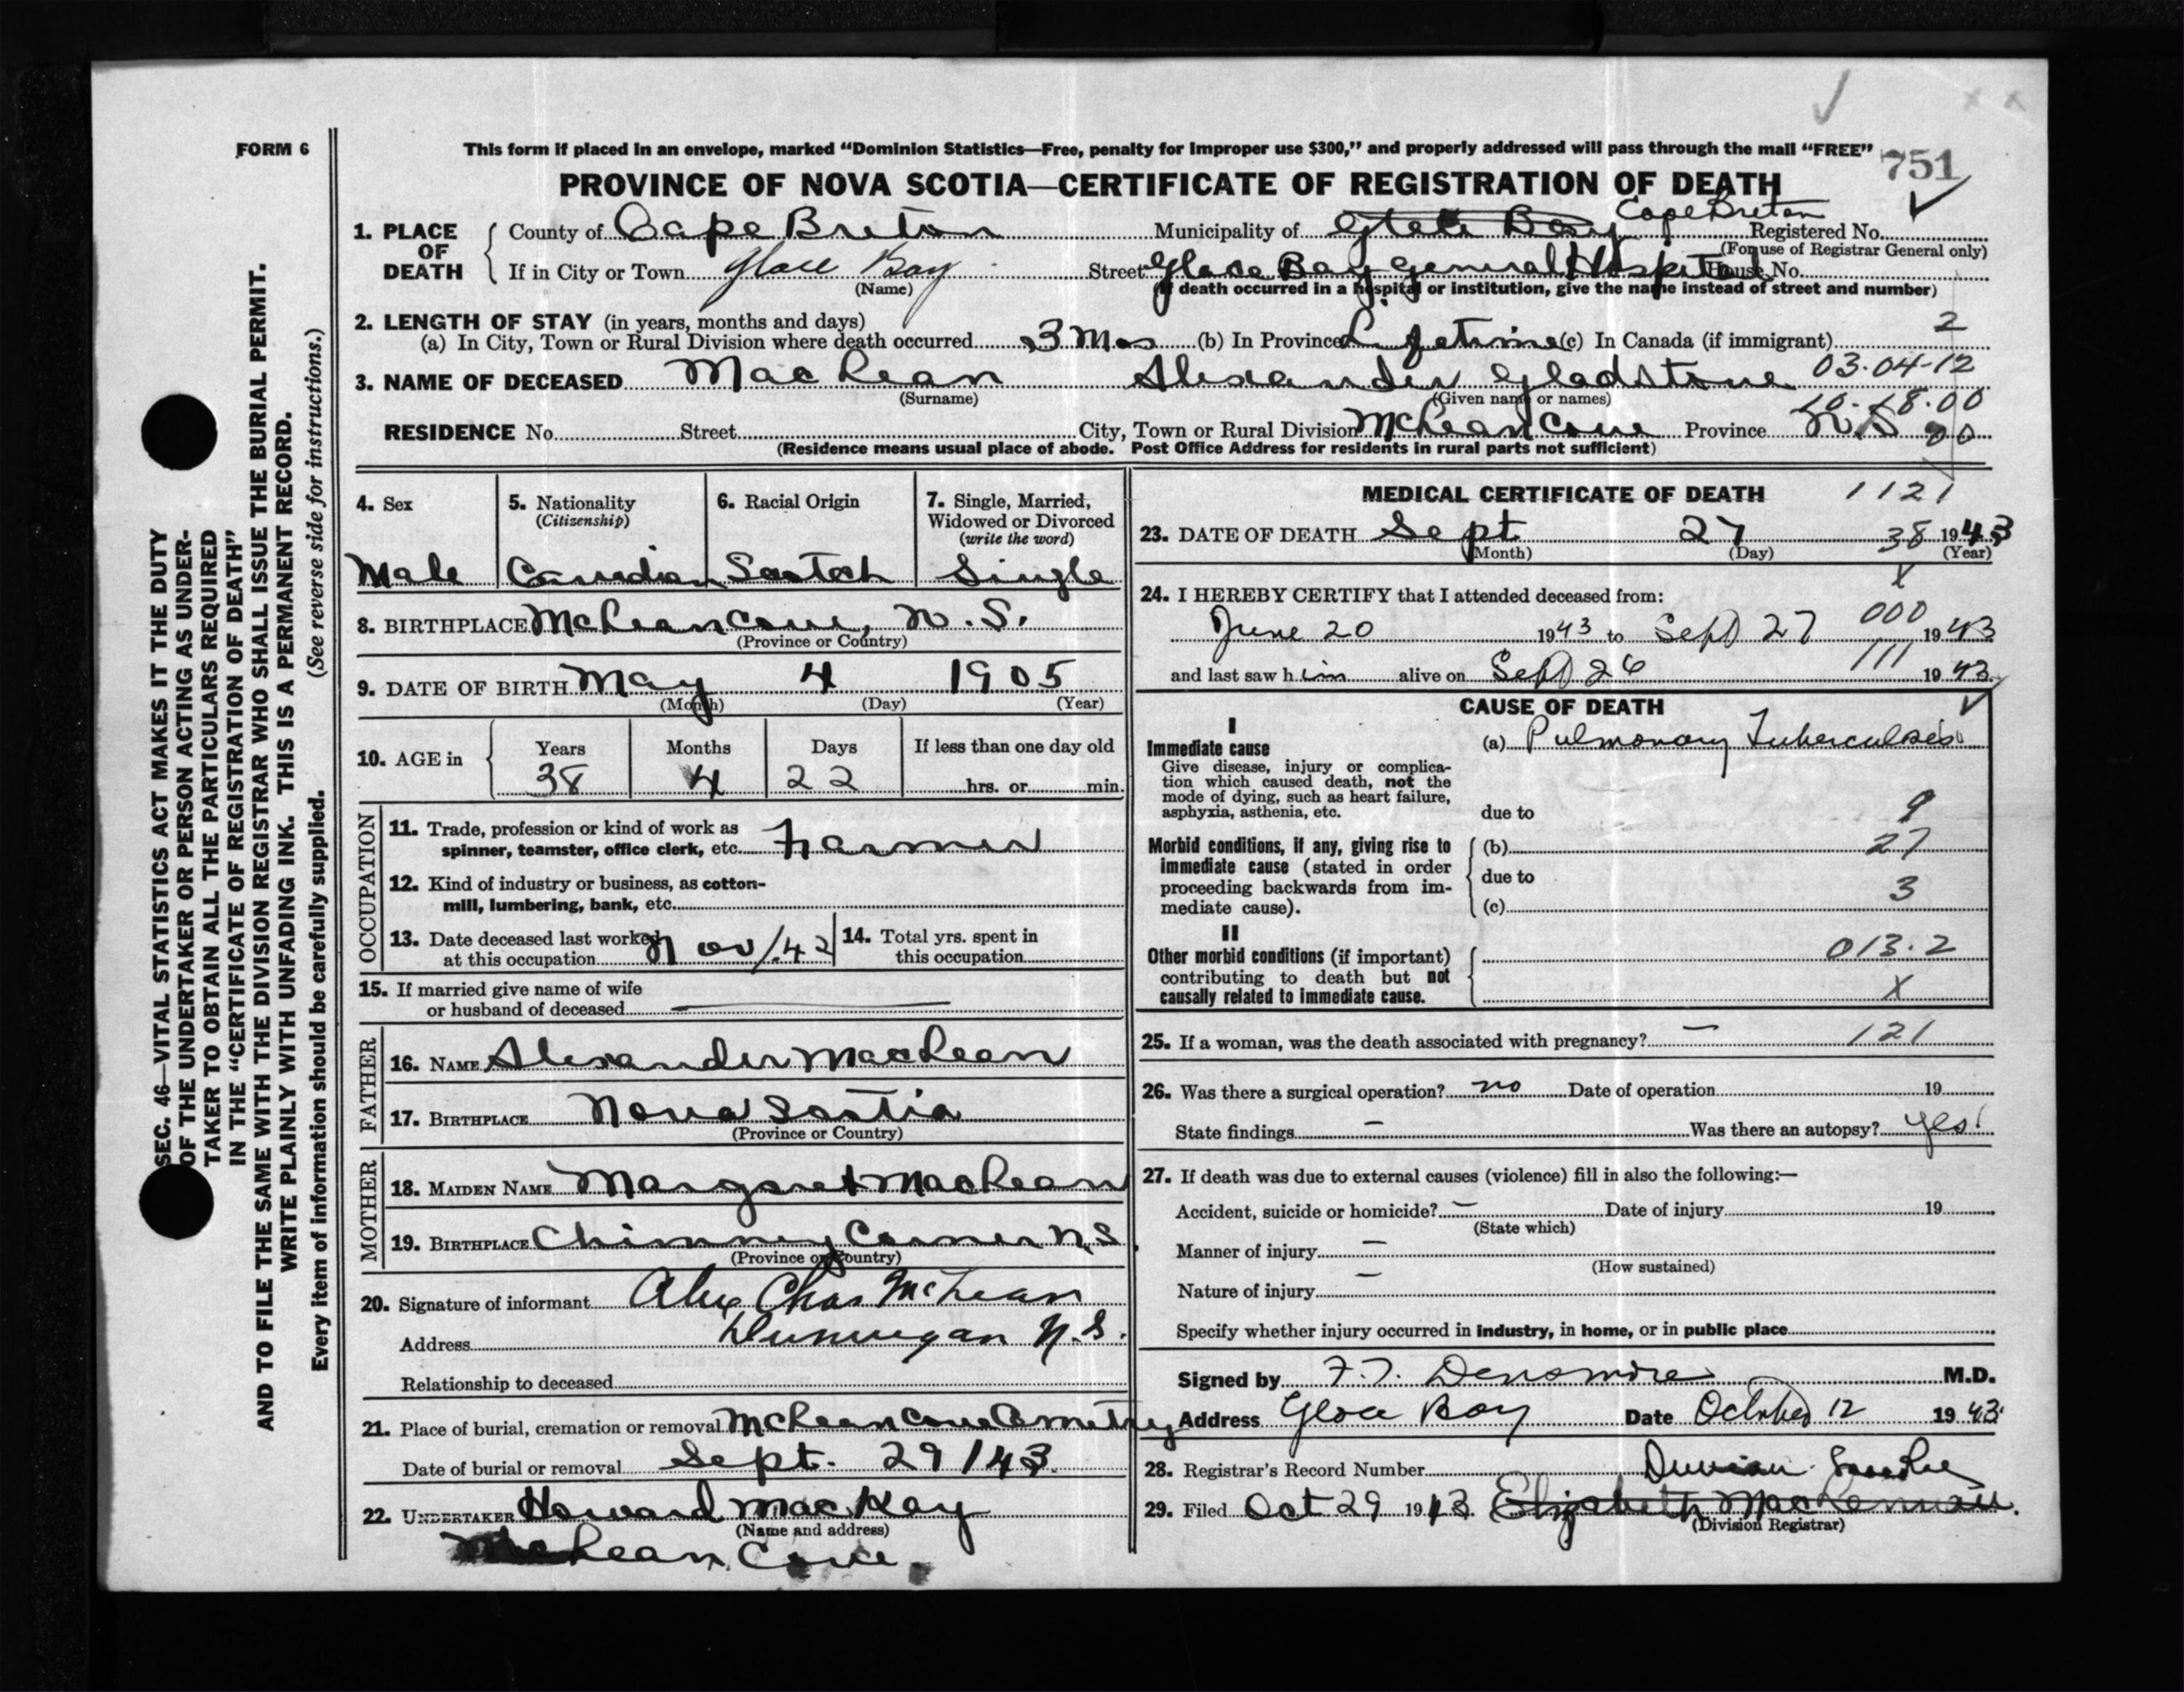 FORM 6
This form if placed in an envelope, marked “Dominion Statistics—Free, penalty for improper use $300,” and properly addressed will pass through the mail “FREE”
751
PROVINCE OF NOVA SCOTIA—CERTIFICATE OF REGISTRATION OF DEATH
1. PLACE OF DEATH County of Cape Breton Municipality of Glace Bay Cape Breton Registered No.
(For use of Registrar General only)
If in City or Town Glace Bay Street Glace Bay General Hospital House No.
(Name) (If death occurred in a hospital or institution, give the name instead of street and number)
2. LENGTH OF STAY (in years, months and days)
(a) In City, Town or Rural Division where death occurred 3 Mos (b) In Province Lifetime (c) In Canada (if immigrant) 2
3. NAME OF DECEASED MacLean Alexander Gladstone 03-04-12
(Surname) (Given name or names) 10-18-00
RESIDENCE No. Street City, Town or Rural Division McLean Cove Province N.S 90
(Residence means usual place of abode. Post Office Address for residents in rural parts not sufficient)
4. Sex
Male
5. Nationality
(Citizenship)
Canadian
6. Racial Origin
Scotch
7. Single, Married,
Widowed or Divorced
(write the word)
Single
8. BIRTHPLACE McLean Cove, N.S.
(Province or Country)
9. DATE OF BIRTH May 4 1905
(Month) (Day) (Year)
10. AGE in Years Months Days If less than one day old
38 4 22 hrs. or min.
OCCUPATION
11. Trade, profession or kind of work as
spinner, teamster, office clerk, etc. Farmer
12. Kind of industry or business, as cotton-
mill, lumbering, bank, etc.
13. Date deceased last worked
at this occupation Nov/42
14. Total yrs. spent in
this occupation
15. If married give name of wife
or husband of deceased —
FATHER
16. NAME Alexander MacLean
17. BIRTHPLACE Nova Scotia
(Province or Country)
MOTHER
18. MAIDEN NAME Margaret MacLean
19. BIRTHPLACE Chimney Corner N.S.
(Province or Country)
20. Signature of informant Alex Chas McLean
Address Dunvegan N.S.
Relationship to deceased
21. Place of burial, cremation or removal McLean Cove Cemetry
Date of burial or removal Sept. 29/43
22. UNDERTAKER Howard MacKay
(Name and address)
McLean Cove.
MEDICAL CERTIFICATE OF DEATH 1121
23. DATE OF DEATH Sept 27 38 1943
(Month) (Day) (Year)
X
24. I HEREBY CERTIFY that I attended deceased from:
June 20 1943 to Sept 27 000 1943
and last saw him alive on Sept 26 111 1943
CAUSE OF DEATH
I
Immediate cause
Give disease, injury or complica-
tion which caused death, not the
mode of dying, such as heart failure,
asphyxia, asthenia, etc.
(a) Pulmonary Tuberculosis
due to 9
Morbid conditions, if any, giving rise to
immediate cause (stated in order
proceeding backwards from im-
mediate cause).
(b) 27
due to
3
(c)
II
Other morbid conditions (if important)
contributing to death but not
causally related to immediate cause.
013.2
X
25. If a woman, was the death associated with pregnancy? — 121
26. Was there a surgical operation? no Date of operation 19
State findings — Was there an autopsy? yes
27. If death was due to external causes (violence) fill in also the following:—
Accident, suicide or homicide? — Date of injury 19
(State which)
Manner of injury —
(How sustained)
Nature of injury —
Specify whether injury occurred in industry, in home, or in public place
Signed by F.T. Densmore M.D.
Address Glace Bay Date October 12 1943
28. Registrar's Record Number
29. Filed Oct 29 1943 Elizabeth MacLennan.
(Division Registrar)
SEC. 46—VITAL STATISTICS ACT MAKES IT THE DUTY
OF THE UNDERTAKER OR PERSON ACTING AS UNDER-
TAKER TO OBTAIN ALL THE PARTICULARS REQUIRED
IN THE “CERTIFICATE OF REGISTRATION OF DEATH”
AND TO FILE THE SAME WITH THE DIVISION REGISTRAR WHO SHALL ISSUE THE BURIAL PERMIT.
WRITE PLAINLY WITH UNFADING INK. THIS IS A PERMANENT RECORD.
Every item of information should be carefully supplied. (See reverse side for instructions.)